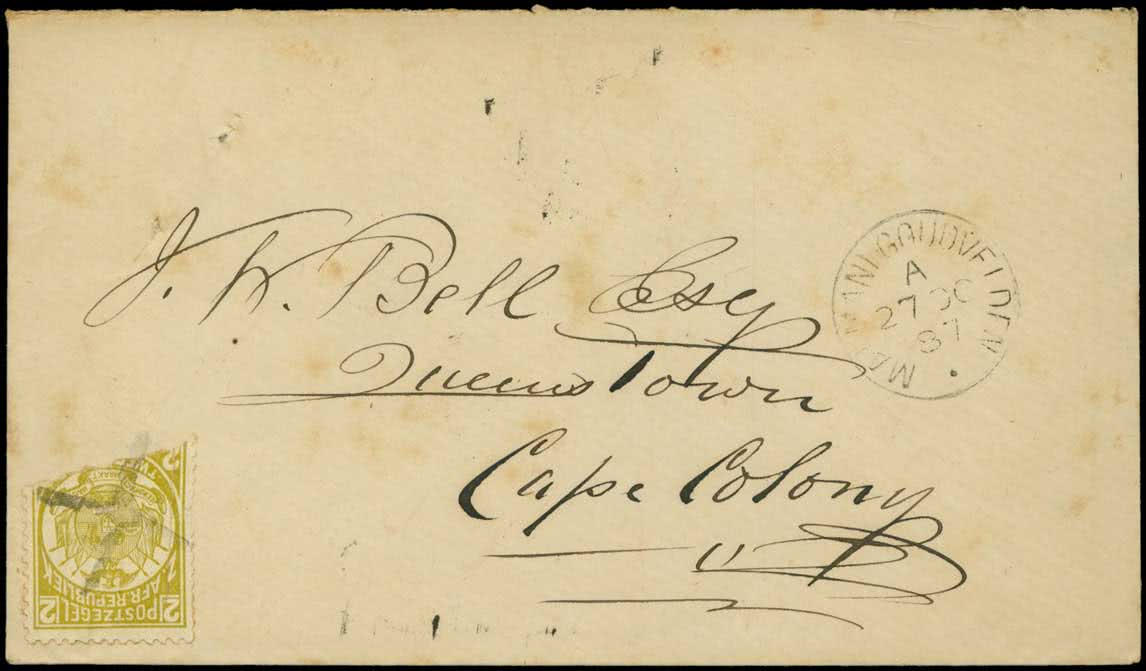 J. W. Bell Esq
Queenstown
Cape Colony
GOUDVELDEN
A
27 OC
87
2 POSTZEGEL 2
AFR. REPUBLIEK